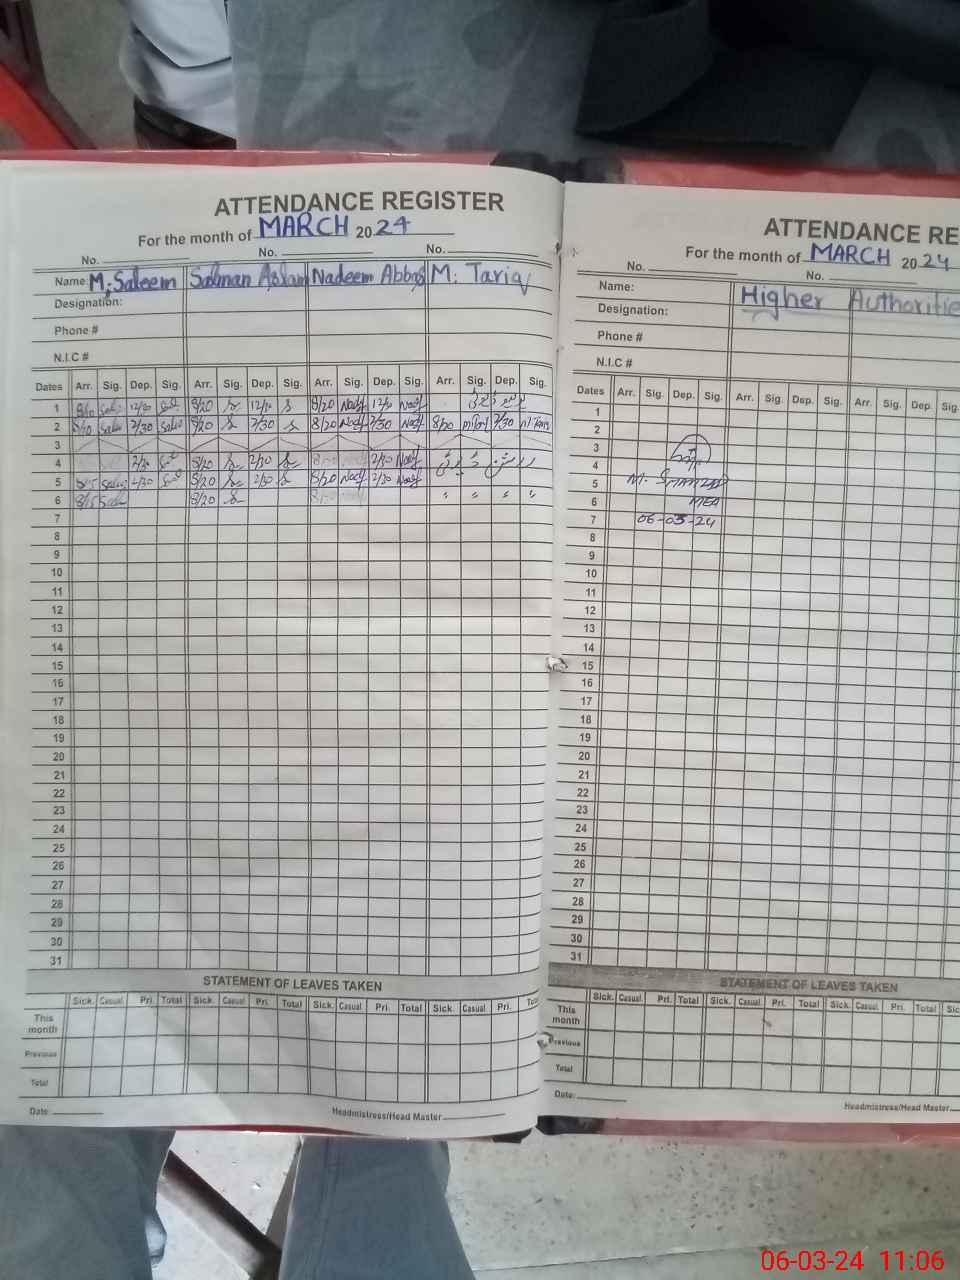 ATTENDANCE REGISTER
For the month of MARCH 2024
No. No. No.
Name: M. Saleem Salman Aslam Nadeem Abbas M. Tariq
Designation:
Phone #
N.I.C #
Dates Arr. Sig. Dep. Sig. Arr. Sig. Dep. Sig. Arr. Sig. Dep. Sig. Arr. Sig. Dep. Sig.
1 8/20 12/30 8/20 12/30
2 8/20 2/30 8/20 2/30 8/20 2/30
3
4 2/30 8/20 2/30 2/30
5 8/15 2/30 8/20 2/30 8/20 2/30
6 8/15 8/20 " " " "
7
8
9
10
11
12
13
14
15
16
17
18
19
20
21
22
23
24
25
26
27
28
29
30
31
STATEMENT OF LEAVES TAKEN
Sick. Casual Pri. Total Sick. Casual Pri. Total Sick. Casual Pri. Total Sick. Casual Pri.
This month
Previous
Total
Date: Headmistress/Head Master
ATTENDANCE RE
For the month of MARCH 2024
No. No.
Name: Higher Authoritie
Designation:
Phone #
N.I.C #
Dates Arr. Sig. Dep. Sig. Arr. Sig. Dep. Sig. Arr. Sig. Dep. Sig.
1
2
3
4
5 M.
6 MEA
7 06-03-24
8
9
10
11
12
13
14
15
16
17
18
19
20
21
22
23
24
25
26
27
28
29
30
31
STATEMENT OF LEAVES TAKEN
Sick. Casual Pri. Total Sick. Casual Pri. Total Sick. Casual Pri. Total
This month
Previous
Total
Date: Headmistress/Head Master
06-03-24 11:06